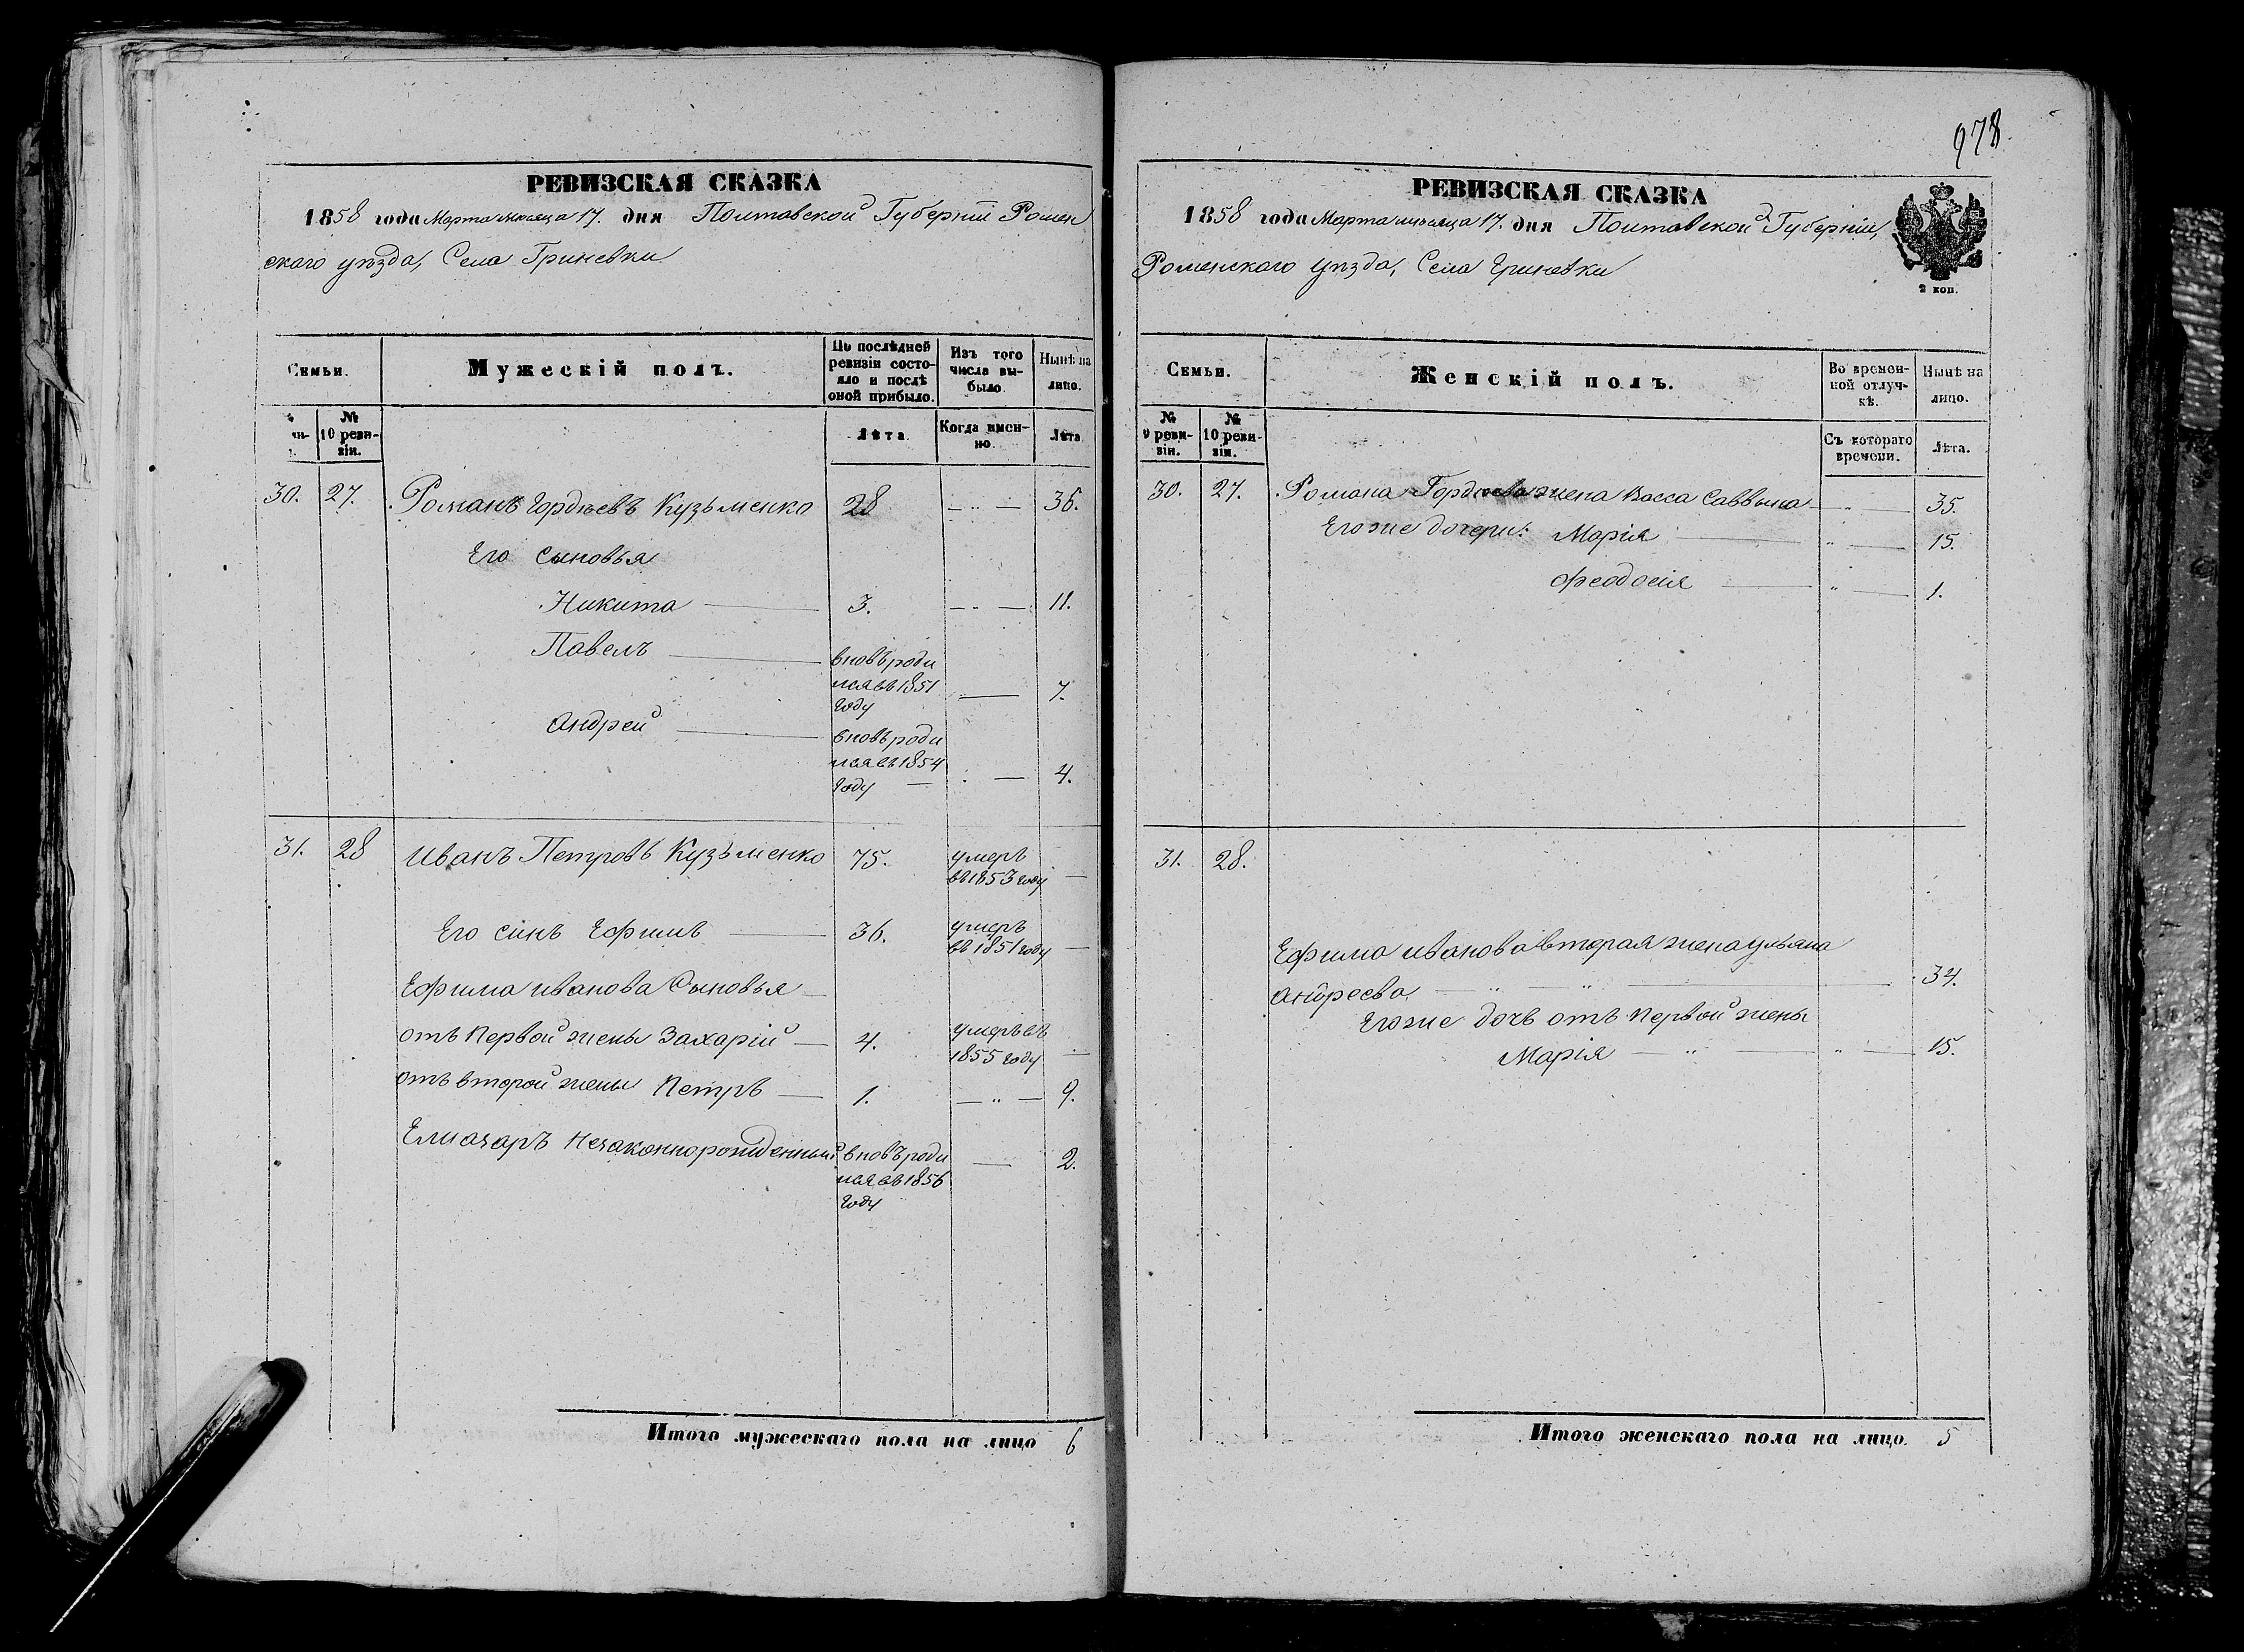 РЕВИЗСКАЯ СКАЗКА
1858 года Марта мѣсяца 17. дня Полтавской Губерніи Ромен
скаго уѣзда, Села Гриневки
Семьи.
Мужескій полъ.
По послѣдней ревизіи состо-
яло и послѣ оной прибыло.
Изъ того числа вы-
было.
Нынѣ на лицо.
№ 10 реви-
зіи.
Лѣта
Когда имен-
но.
Лѣта
30. 27. Романъ Гордѣевъ Кузьменко 28 — „ — 36.
Его сыновья
Никита — 3. — „ — 11.
Павелъ — вновь роди
лся въ 1851 — 7.
году
Андрей — вновь роди
лся въ 1854
году — „ — 4.
31. 28 Иванъ Петровъ Кузьменко 75. умеръ
въ 1853 году —
Его синъ Ефимъ — 36. умеръ
въ 1851 году —
Ефима Иванова Сыновья —
отъ Первой жены Захарій — 4. умеръ въ
1855 году —
отъ второй жены Петръ — 1. — „ — 9.
Елиазаръ Незаконнорожденный вновь роди — 2.
лся въ 1856
году
Итого мужескаго пола на лицо 6
978
РЕВИЗСКАЯ СКАЗКА
1858 года Марта мѣсяца 17. дня Полтавской Губерніи,
Роменскаго уѣзда, Села Гриневки
2 коп.
Семьи.
Женскій полъ.
Во времен-
ной отлуч-
кѣ.
Нынѣ на лицо.
№ 9 реви-
зіи.
№ 10 реви-
зіи.
Съ котораго времени.
Лѣта.
30. 27. Романа Гордѣева жена Васса Саввына — „ — 35.
Его же дочери: Марія — „ — 15.
Феодосія — „ — 1.
31. 28.
Ефима Иванова вторая жена Ульяна
Андреева — „ — „ — 34.
Его же дочь отъ Первой жены
Марія — „ — „ — 15.
Итого женскаго пола на лицо. 5